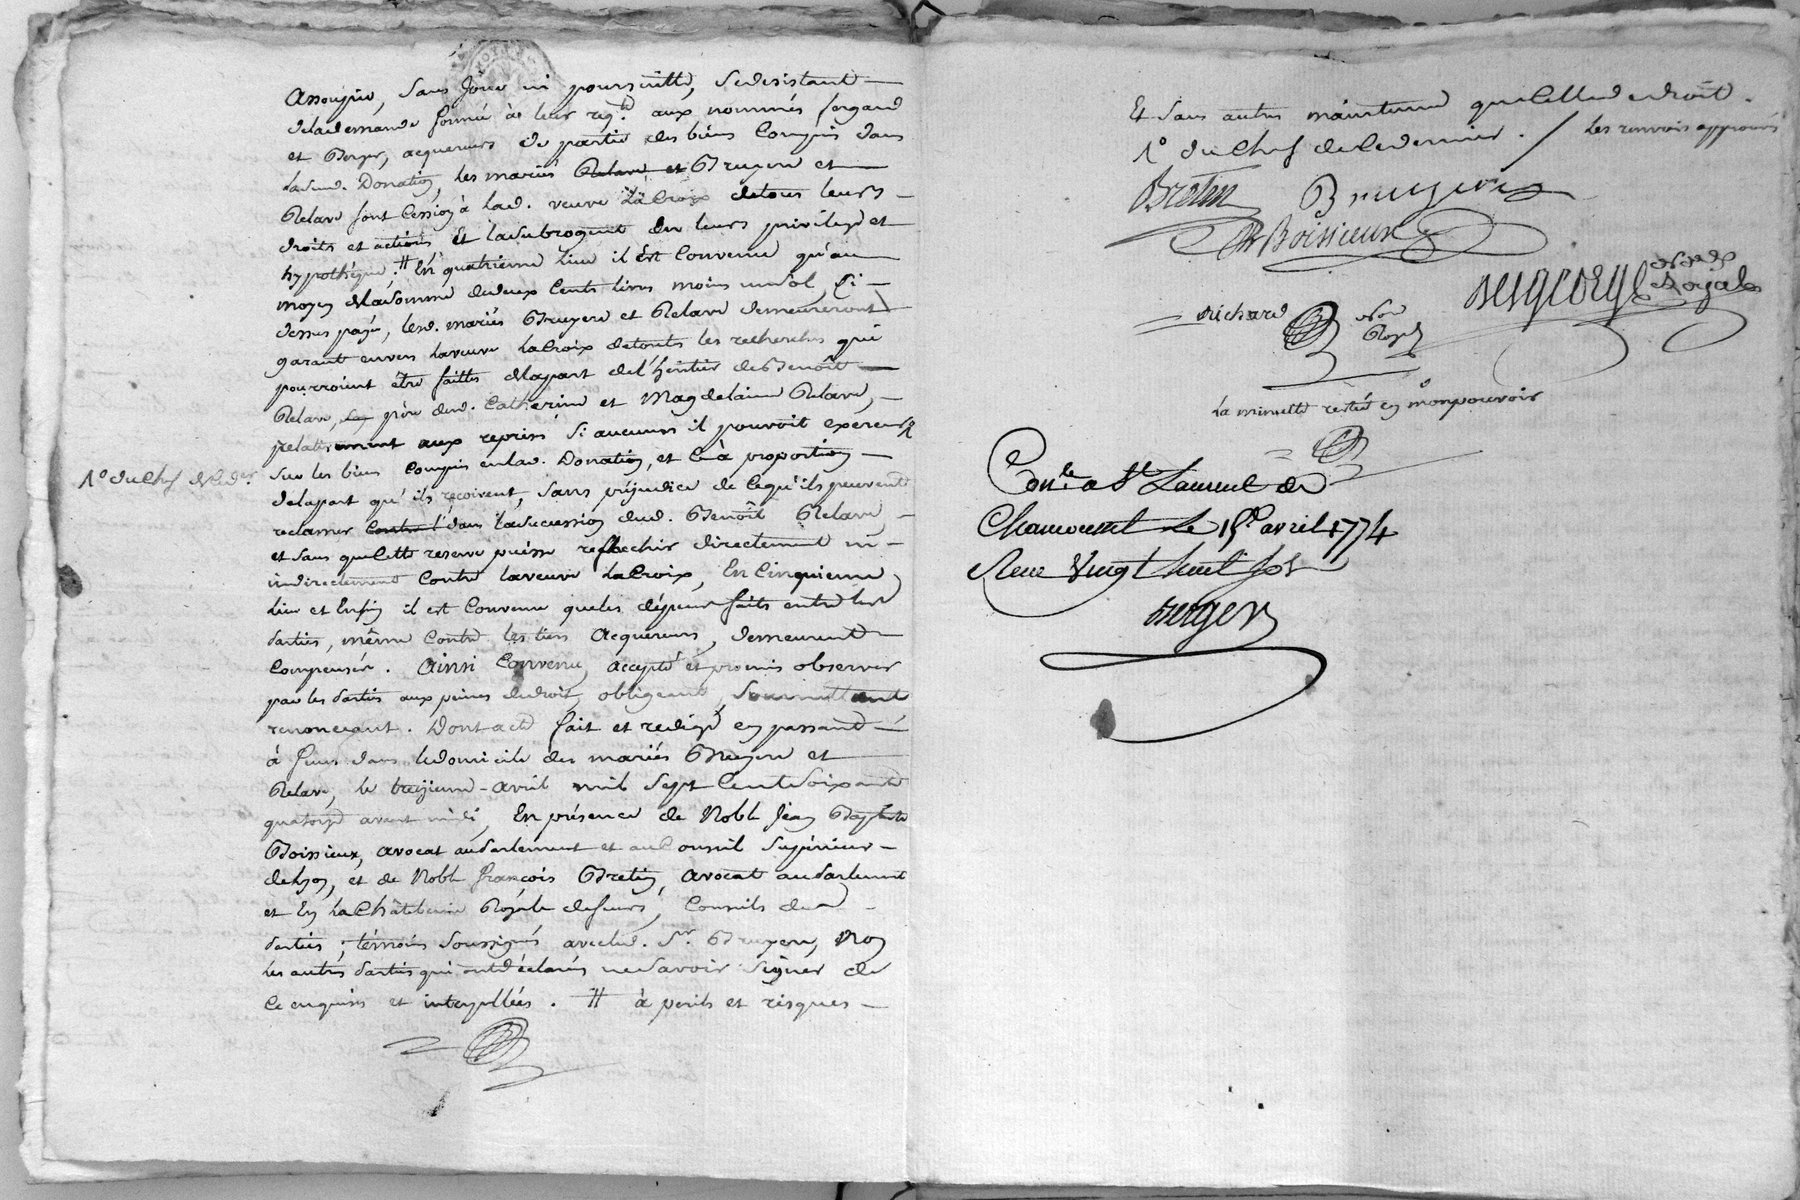 assoupie, sans forme ni poursuitte, se desistant
de la demande formée à leur reqte aux nommés
et Berger, acquereurs de partie des biens compris dans
lad. Donation, les mariés Relave et Bruyere et
Relave font cession à lad. veuve LaCroix de tous leurs
droits et actions et la subrogent en leurs privilege et
hypothèque. # En quatrieme lieu il est convenu qu'au
moyen de la somme de deux cents livres moins un sol, ci
dessus payée, lesd. mariés Bruyere et Relave demeureront
garant envers la veuve LaCroix de touts les recherches qui
pourroient être faittes de la part de l'héritier de Benoît
Relave, père desd. Catherine et Magdelaine Relave,
relativement aux reprises si aucunes il pouvoit exercer
sur les biens compris en lad. Donation, et ce à proportion
1° du chef de led.
de la part qu'ils reçoivent, sans préjudice de ce qu'ils peuvent
reclamer contre l' dans la succession dud. Benoît Relave,
et sans que cette reserve puisse reflechir directement ni
indirectement contre la veuve LaCroix, En cinquieme
lieu et Enfin il est convenu que les dépens faits entre les
parties, même contre les tiers acquereurs, demeurent
compensés. Ainsi convenu, accepté et promis observer
par les parties aux peines de droit, obligeant, soumettant
renonceant. Dont acte fait et redigé en passant
à feurs dans le domicile des mariés Bruyere et
Relave, le treizieme avril mil sept cent soixante
quatorze avant midi, En présence de Noble Jean Baptiste
Boissieux, avocat au parlement et au Conseil Supérieur
de Lyon, et de Noble françois Bretin, avocat au parlement
et En la Châtelenie Royale de feurs, conseils des
parties, témoins soussignés avec led. Sr. Bruyere, Non
les autres parties qui ont déclarés ne savoir signer de
ce enquises et interpellées. # à perils et risques
Et sans autre maintenue que celle de droit.
1° du chef de ce dernier. / les renvois approuvés
Bretin Bruyere
Boissieux
Desgeorges Royal
Richard Royal
La minutte restée en mon pouvoir
Conlé a St Laurent de
Chamousset le 15e avril 1774
Reçu vingt huit sols
Berger